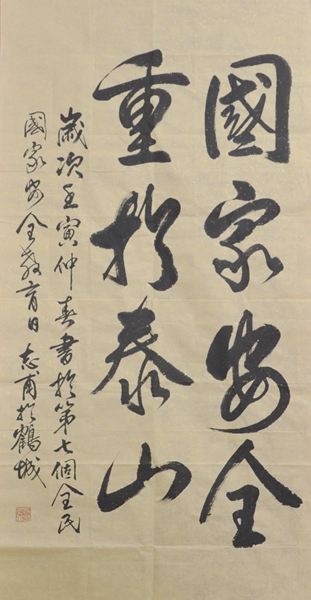 國家安全
重於泰山
歲次壬寅仲春書於第七個全民
國家安全教育日志甫於鶴城